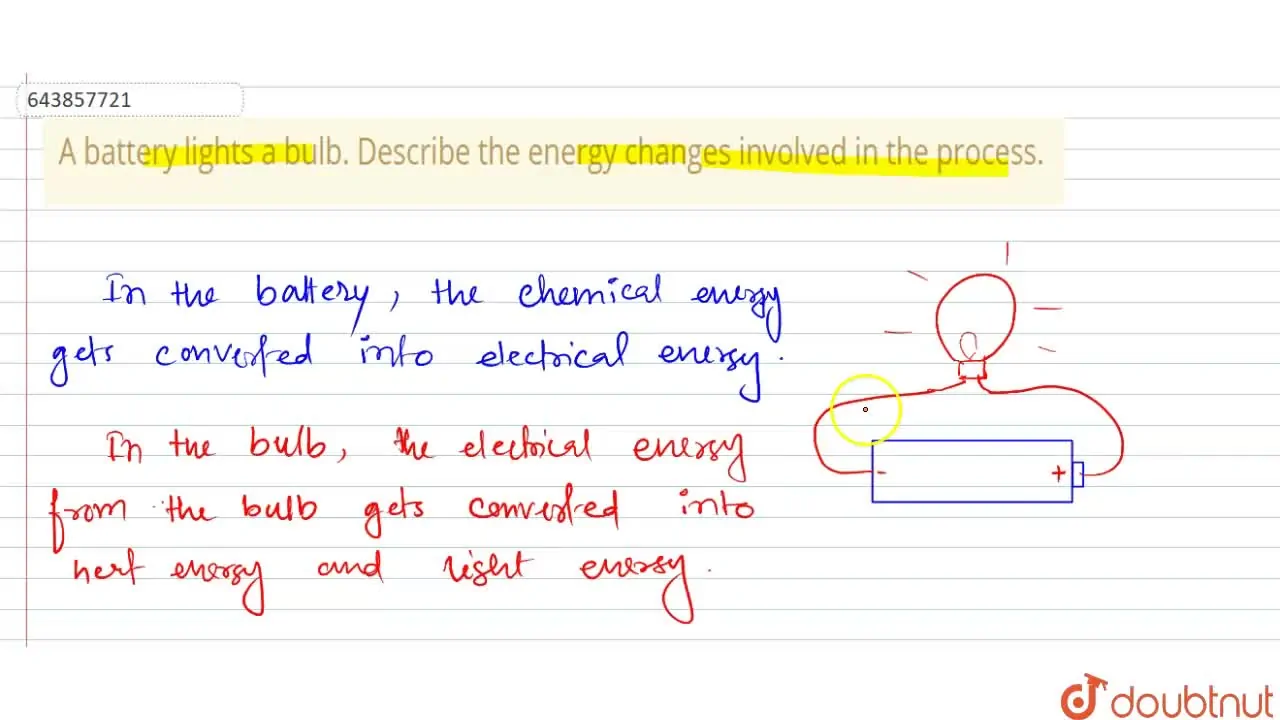 643857721
A battery lights a bulb. Describe the energy changes involved in the process.
In the battery, the chemical energy
gets converted into electrical energy.
In the bulb, the electrical energy
from the bulb gets converted into
heat energy and light energy.
- +
doubtnut